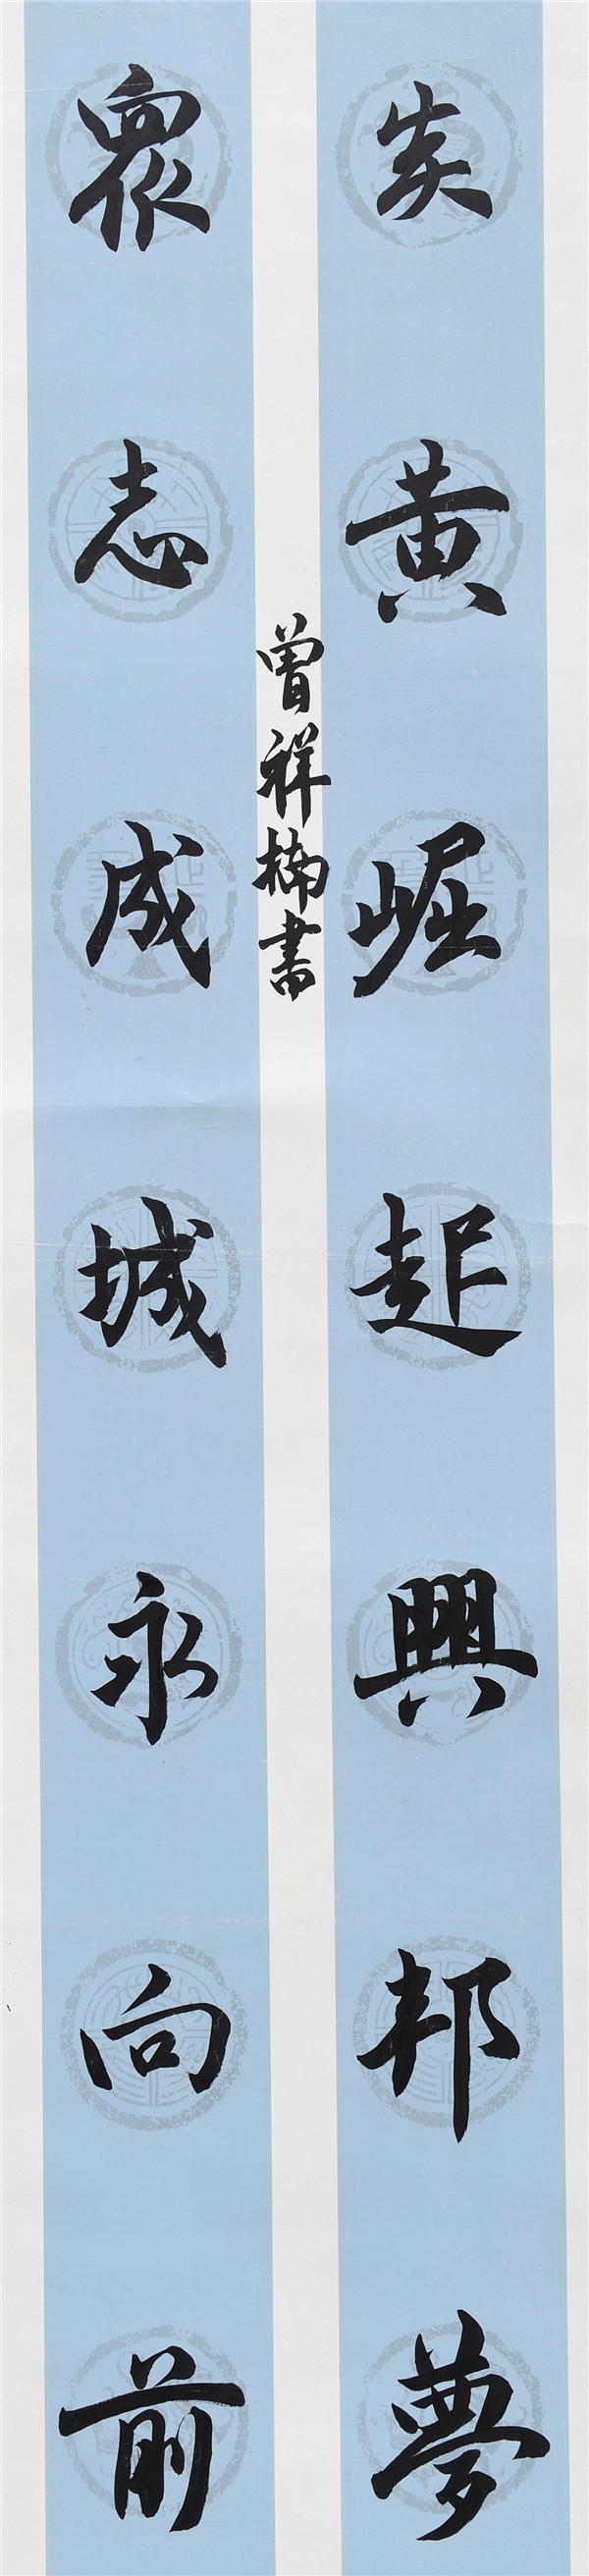 炎黄崛起興邦夢
衆志成城永向前
曾祥楠書